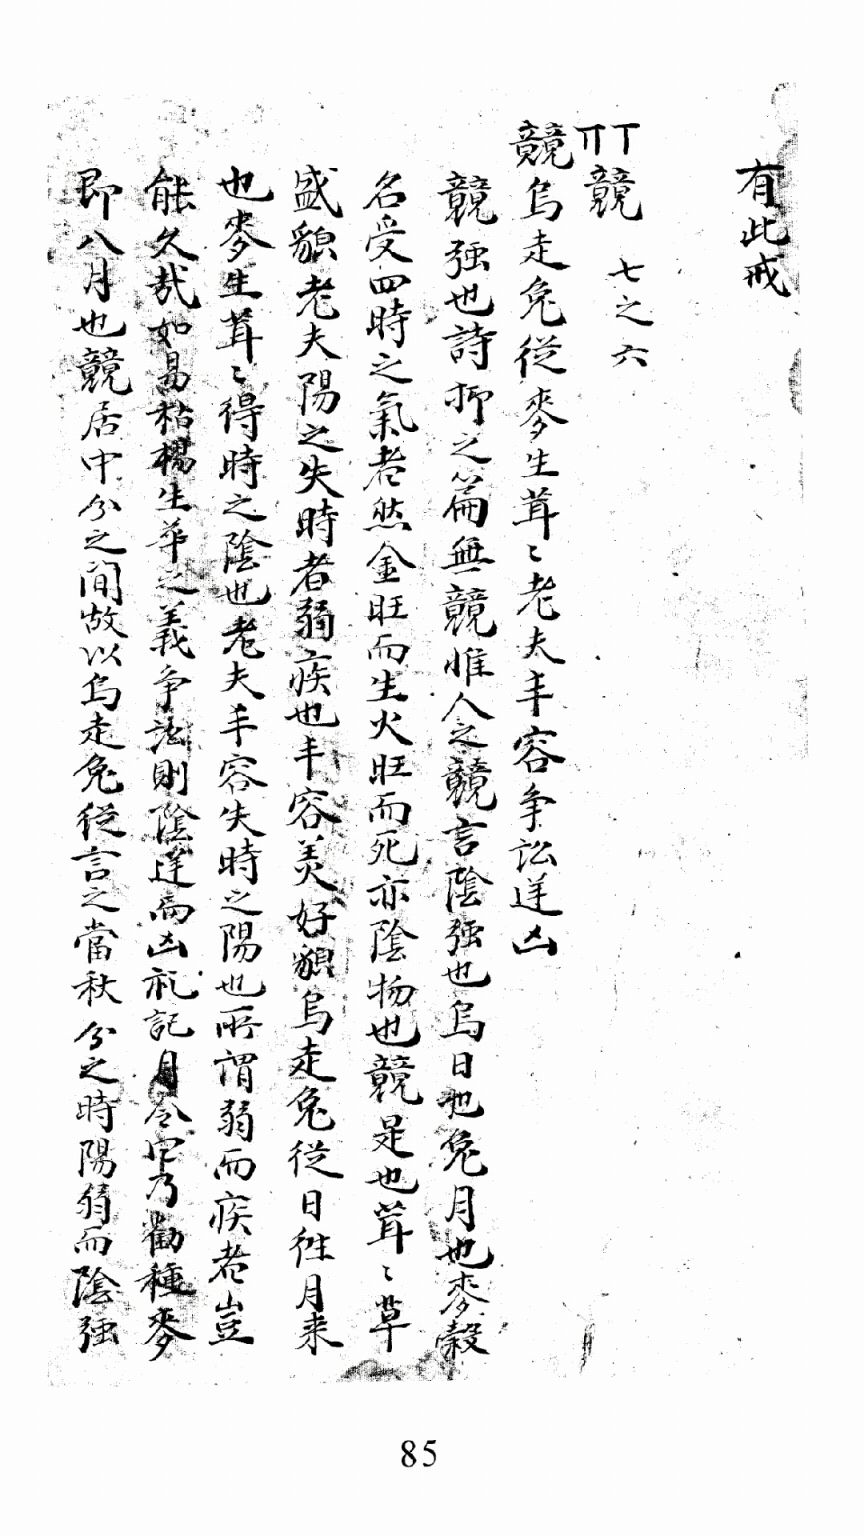 有此戒
丅丌競 七之六
競烏走兔從麥生茸〻老夫丰容争訟逆凶
競强也詩抑之篇無競惟人之競言陰强也烏日也兔月也麥穀
名受四時之氣者然金旺而生火旺而死亦陰物也競是也茸〻草
盛貌老夫陽之失時者弱疾也丰容美好貌烏走兔從日往月来
也麥生茸〻得時之陰也老夫丰容失時之陽也所謂弱而疾者豈
能久哉如易枯楊生華之義争訟則陰逆而凶礼記月令中乃勸種麥
即八月也競居中分之間故以烏走兔從言之當秋分之時陽弱而陰强
85